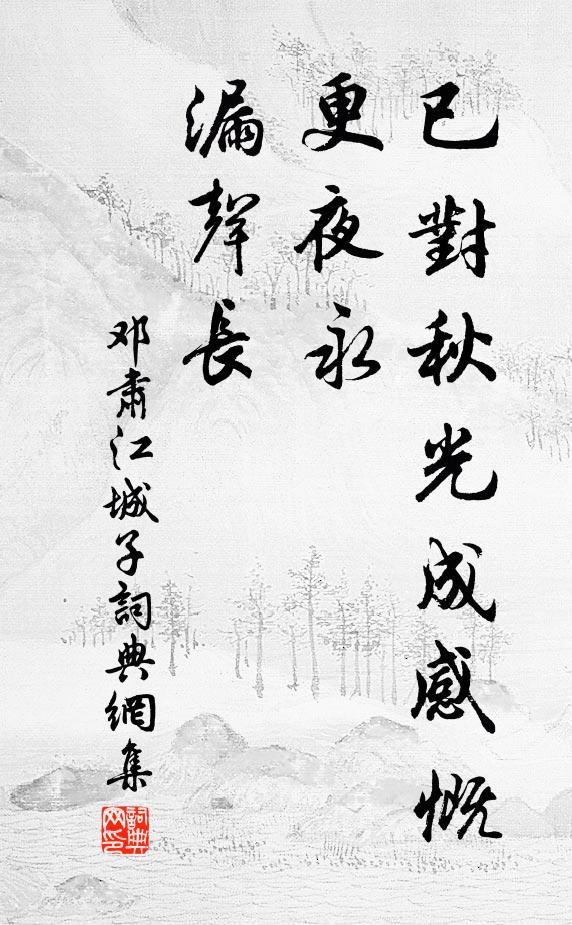 已對秋光成感慨
更夜永
漏聲長
邓肅江城子詞典網集
詞典
网印